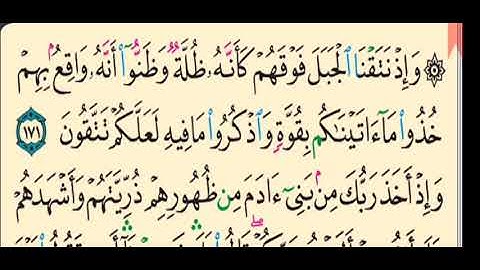 ۞ وَإِذْ نَتَقْنَا ٱلْجَبَلَ فَوْقَهُمْ كَأَنَّهُۥ ظُلَّةٌ وَظَنُّوٓا۟ أَنَّهُۥ وَاقِعٌۢ بِهِمْ
خُذُوا۟ مَآ ءَاتَيْنَٰكُم بِقُوَّةٍ وَٱذْكُرُوا۟ مَا فِيهِ لَعَلَّكُمْ تَتَّقُونَ ١٧١
وَإِذْ أَخَذَ رَبُّكَ مِنۢ بَنِىٓ ءَادَمَ مِن ظُهُورِهِمْ ذُرِّيَّتَهُمْ وَأَشْهَدَهُمْ